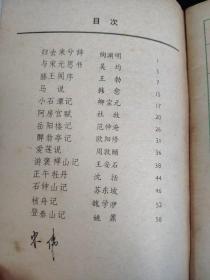 目次
归去来兮辞 陶渊明 1
与宋元思书 吴均 3
滕王阁序 王勃 5
马说 韩愈
小石潭记 柳宗元
阿房宫赋 杜牧
岳阳楼记 范仲淹
醉翁亭记 欧阳修
爱莲说 周敦颐
游褒禅山记 王安石
正午牡丹 沈括
石钟山记 苏东坡
核舟记 魏学洢
登泰山记 姚鼐 58